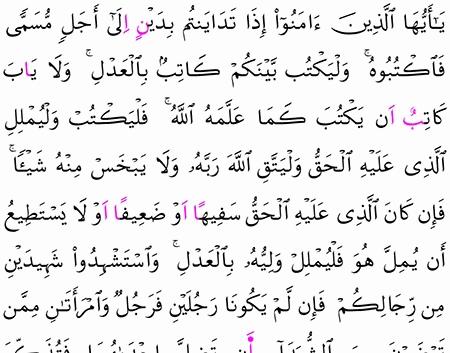 يَـٰٓأَيُّهَا ٱلَّذِينَ ءَامَنُوٓا۟ إِذَا تَدَايَنتُم بِدَيْنٍ اِلَىٰٓ أَجَلٍ مُّسَمًّى
فَٱكْتُبُوهُ ۚ وَلْيَكْتُب بَّيْنَكُمْ كَاتِبٌۢ بِٱلْعَدْلِ ۚ وَلَا يَابَ
كَاتِبٌ اَن يَكْتُبَ كَمَا عَلَّمَهُ ٱللَّهُ ۚ فَلْيَكْتُبْ وَلْيُمْلِلِ
ٱلَّذِى عَلَيْهِ ٱلْحَقُّ وَلْيَتَّقِ ٱللَّهَ رَبَّهُۥ وَلَا يَبْخَسْ مِنْهُ شَيْـًٔا ۚ
فَإِن كَانَ ٱلَّذِى عَلَيْهِ ٱلْحَقُّ سَفِيهًا اَوْ ضَعِيفًا اَوْ لَا يَسْتَطِيعُ
أَن يُمِلَّ هُوَ فَلْيُمْلِلْ وَلِيُّهُۥ بِٱلْعَدْلِ ۚ وَٱسْتَشْهِدُوا۟ شَهِيدَيْنِ
مِن رِّجَالِكُمْ ۖ فَإِن لَّمْ يَكُونَا رَجُلَيْنِ فَرَجُلٌ وَٱمْرَأَتَانِ مِمَّن